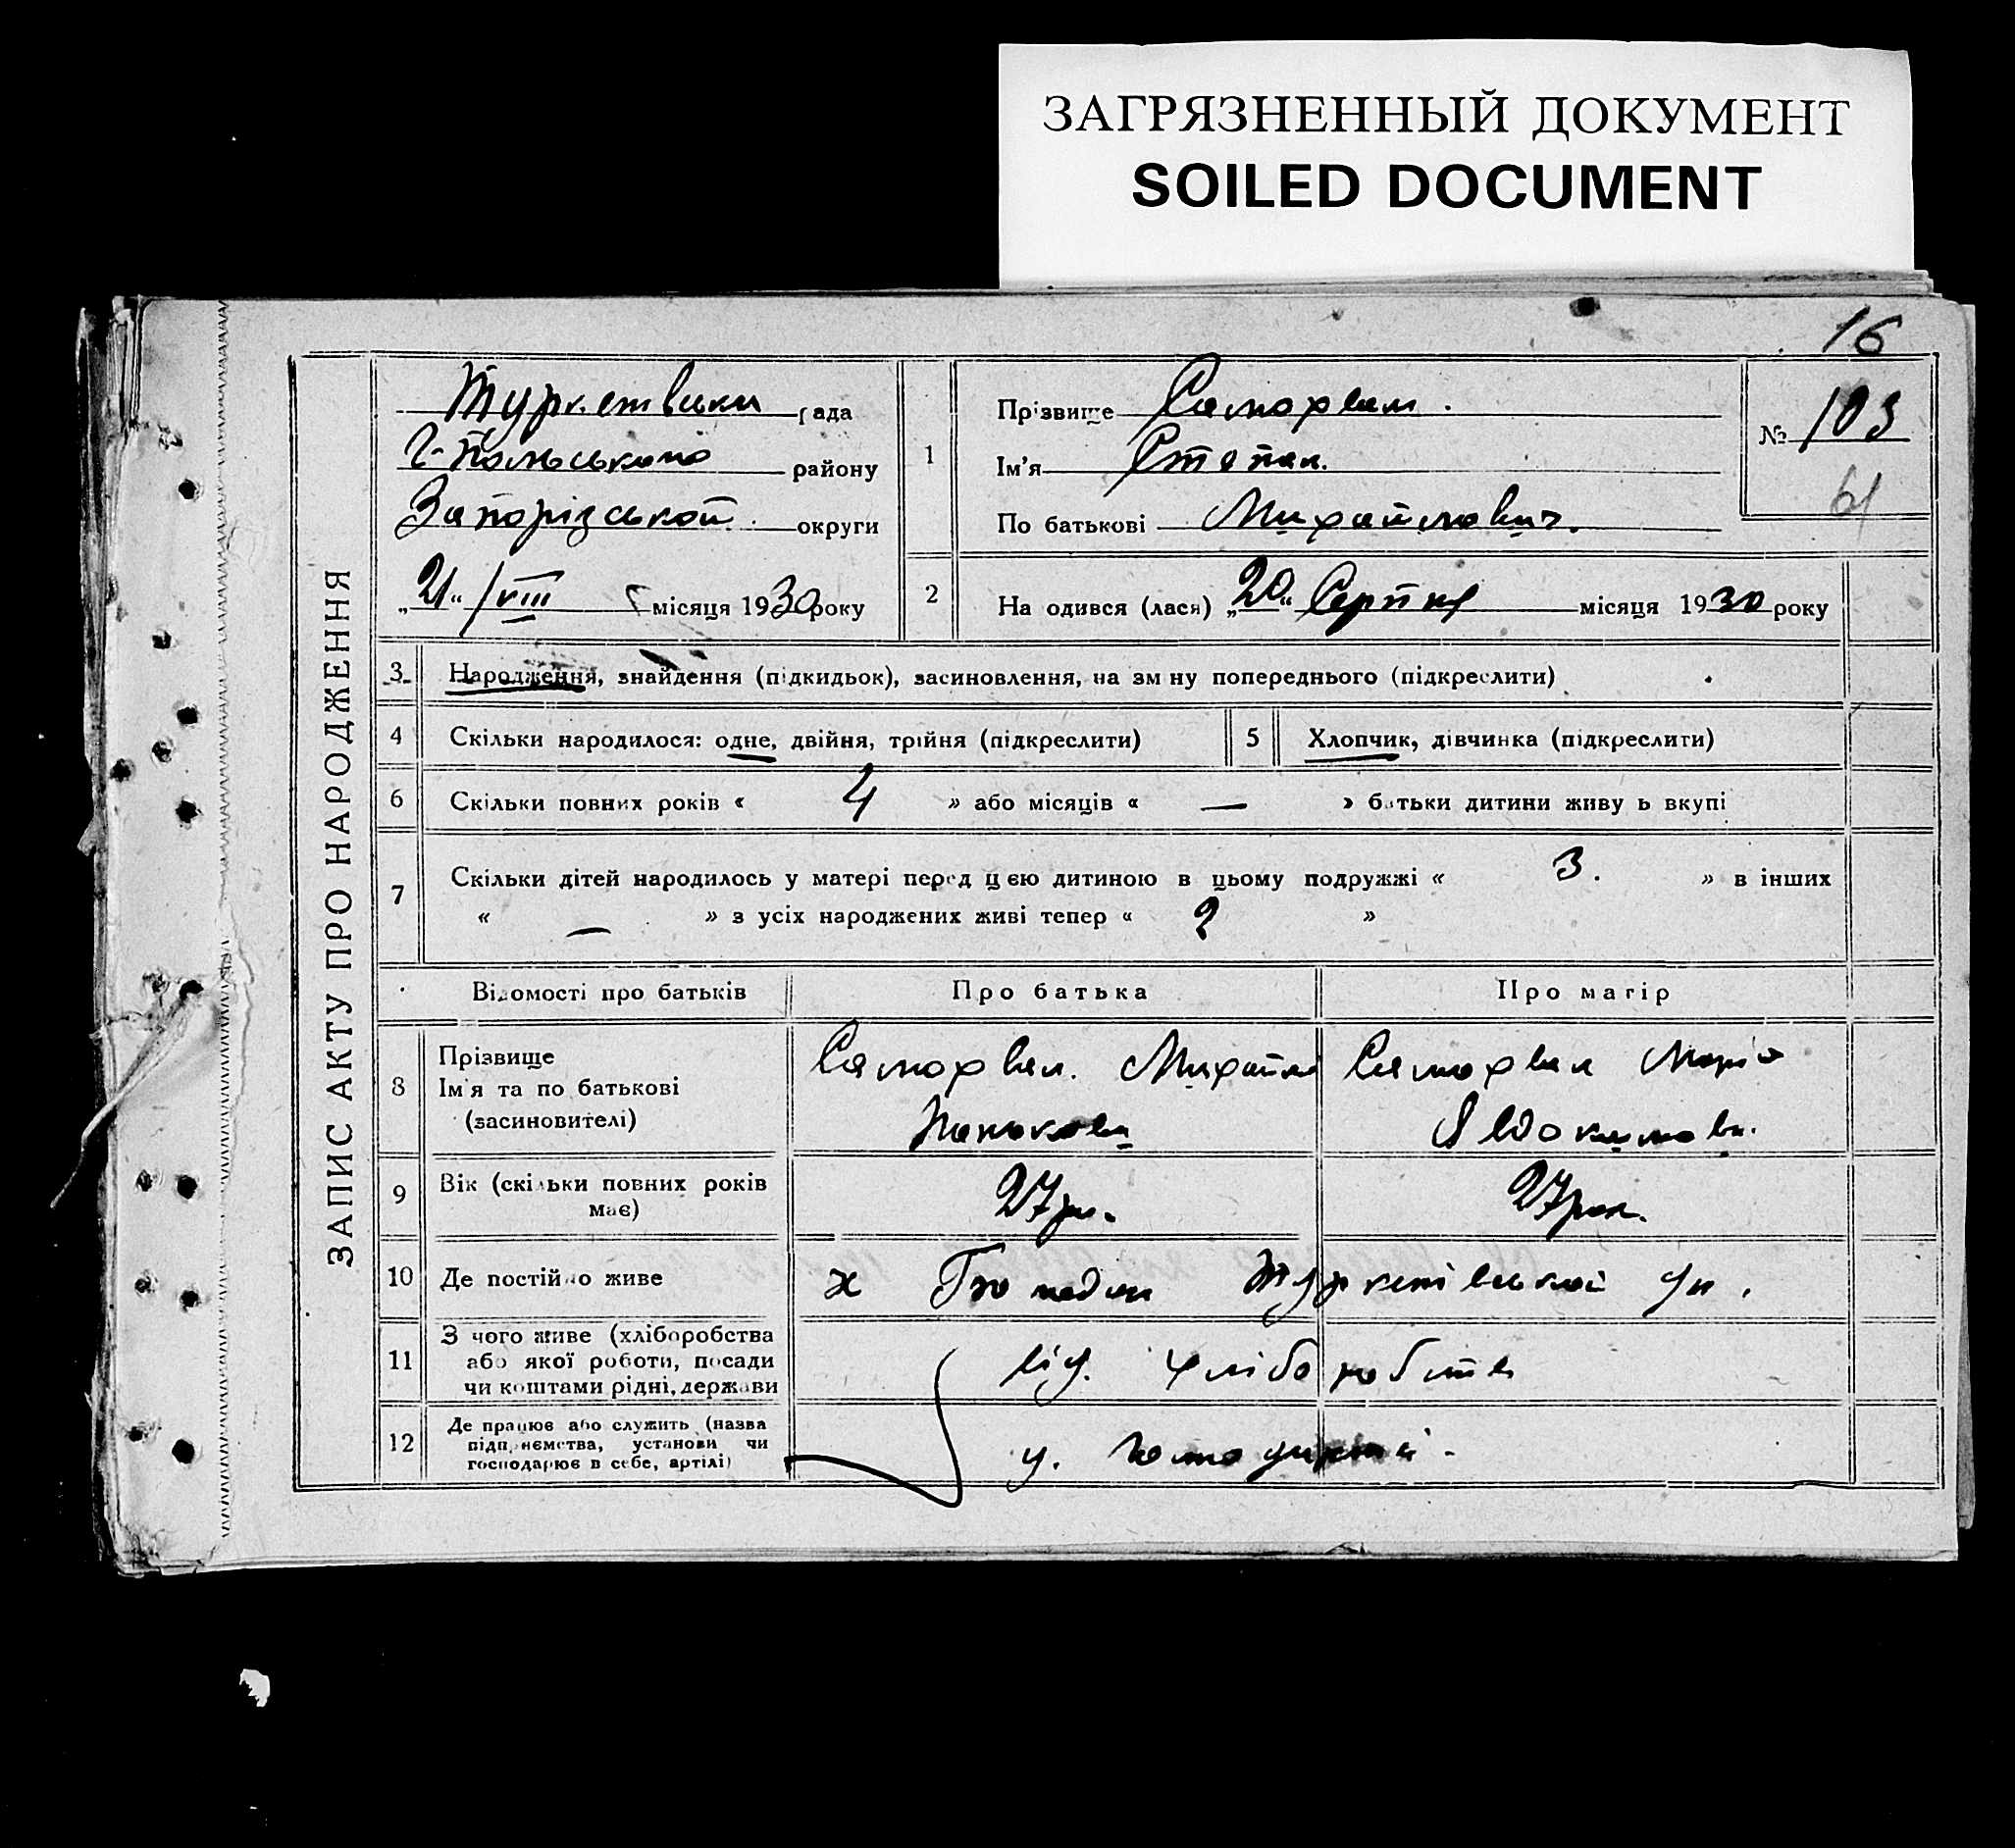 ЗАГРЯЗНЕННЫЙ ДОКУМЕНТ
SOILED DOCUMENT
16
ЗАПИС АКТУ ПРО НАРОДЖЕННЯ
рада
району
Запорізської округи
„21“ /VIII місяця 1930 року
1
Прізвище Саморвал.
Ім'я Степан.
По батькові Михайлович.
№ 103
61
2
На одився (лася) „20“ Серпня місяця 1930 року
3
Народження, знайдення (підкидьок), засиновлення, на зм ну попереднього (підкреслити)
4
Скільки народилося: одне, двійня, трійня (підкреслити)
5
Хлопчик, дівчинка (підкреслити)
6
Скільки повних років « 4 » або місяців « — » батьки дитини живу ь вкупі
7
Скільки дітей народилось у матері перед цією дитиною в цьому подружжі « 3. » в інших
« — » з усіх народжених живі тепер « 2 »
Відомості про батьків
Про батька
Про матір
8
Прізвище
Ім'я та по батькові
(засиновителі)
Саморвал. Михайло
Саморвал Марія
Явдокимовн.
9
Вік (скільки повних років
має)
27 рк.
27 рок.
10
Де постійно живе
х
11
З чого живе (хліборобства
або якої роботи, посади
чи коштами рідні, держави
від. хліборобства
12
Де працює або служить (назва
підприємства, установи чи
господарює в себе, артілі)
у.